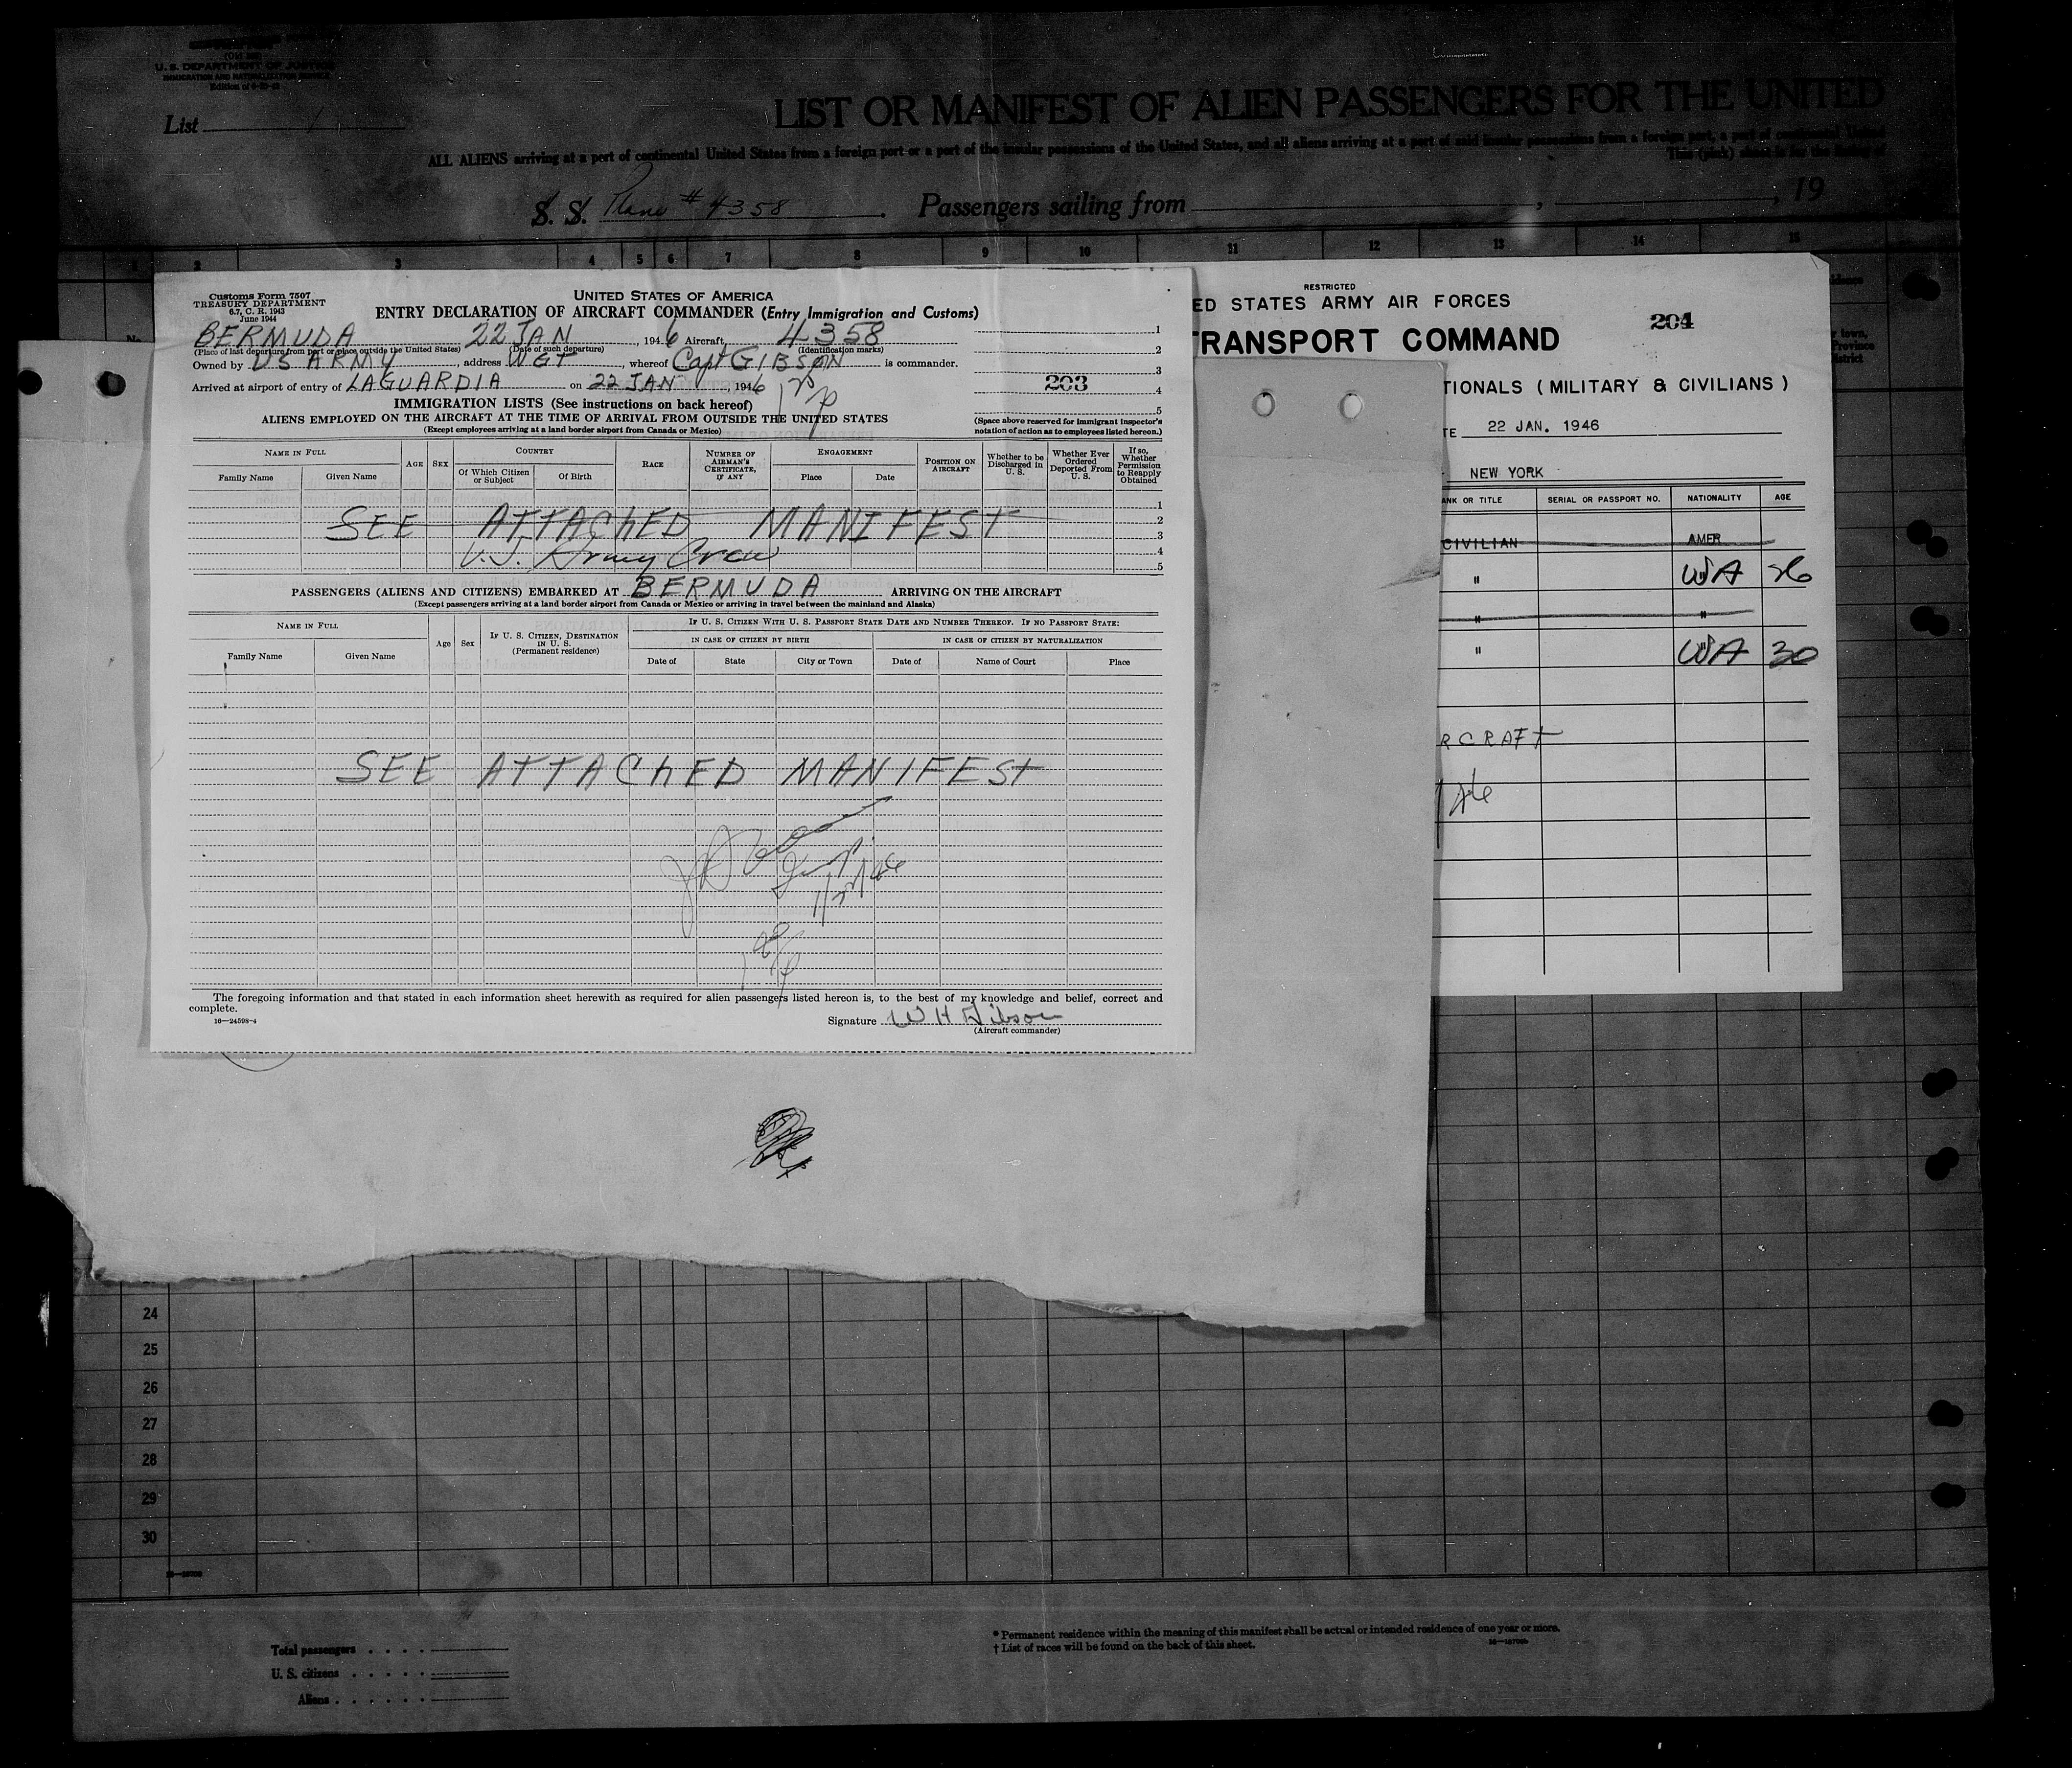 (Old 500)
U. S. DEPARTMENT OF JUSTICE
IMMIGRATION AND NATURALIZATION SERVICE
List 1
LIST OR MANIFEST OF ALIEN PASSENGERS FOR THE UNITED
ALL ALIENS arriving at a port of continental United States from a foreign port or a port of the insular possessions of the United States, and all aliens arriving at a port of said insular possessions from a foreign port, a port of continental United
This (pink) sheet is for the listing of
S. S. Plane # 4358. Passengers sailing from , , 19
2 3 4 5 6 7 8 9 10 11 12 13 14 15
Customs Form 7507
TREASURY DEPARTMENT
6.7, C. R. 1943
June 1944
UNITED STATES OF AMERICA
ENTRY DECLARATION OF AIRCRAFT COMMANDER (Entry Immigration and Customs)
BERMUDA 22 JAN, 1946 Aircraft, 4358
(Place of last departure from port or place outside the United States) (Date of such departure) (Identification marks)
Owned by US ARMY, address WGT, whereof Capt GIBSON is commander.
Arrived at airport of entry of LAGUARDIA on 22 JAN, 1946
1
2
3
203 4
5
IMMIGRATION LISTS (See instructions on back hereof)
ALIENS EMPLOYED ON THE AIRCRAFT AT THE TIME OF ARRIVAL FROM OUTSIDE THE UNITED STATES
(Except employees arriving at a land border airport from Canada or Mexico)
(Space above reserved for Immigrant Inspector's notation of action as to employees listed hereon.)
NAME IN FULL AGE SEX COUNTRY RACE NUMBER OF AIRMAN'S CERTIFICATE, IF ANY ENGAGEMENT POSITION ON AIRCRAFT Whether to be Discharged in U. S. Whether Ever Ordered Deported From U. S. If so, Whether Permission to Reapply Obtained
Family Name Given Name Of Which Citizen or Subject Of Birth Place Date
1
SEE ATTACHED MANIFEST 2
3
U.S. Army Crew 4
5
PASSENGERS (ALIENS AND CITIZENS) EMBARKED AT BERMUDA ARRIVING ON THE AIRCRAFT
(Except passengers arriving at a land border airport from Canada or Mexico or arriving in travel between the mainland and Alaska)
NAME IN FULL Age Sex IF U. S. CITIZEN, DESTINATION IN U. S. (Permanent residence) IF U. S. CITIZEN WITH U. S. PASSPORT STATE DATE AND NUMBER THEREOF. IF NO PASSPORT STATE:
IN CASE OF CITIZEN BY BIRTH IN CASE OF CITIZEN BY NATURALIZATION
Family Name Given Name Date of State City or Town Date of Name of Court Place
SEE ATTACHED MANIFEST
1/22/46
The foregoing information and that stated in each information sheet herewith as required for alien passengers listed hereon is, to the best of my knowledge and belief, correct and
complete.
16—24598-4
Signature W H Gibson
(Aircraft commander)
RESTRICTED
ED STATES ARMY AIR FORCES
204
TRANSPORT COMMAND
TIONALS ( MILITARY & CIVILIANS )
TE 22 JAN. 1946
NEW YORK
ANK OR TITLE SERIAL OR PASSPORT NO. NATIONALITY AGE
CIVILIAN AMER
" WA 26
" "
" WA 30
RCRAFT
24
25
26
27
28
29
30
Total passengers . . . .
U. S. citizens . . . . .
Aliens . . . . . .
* Permanent residence within the meaning of this manifest shall be actual or intended residence of one year or more.
† List of races will be found on the back of this sheet.